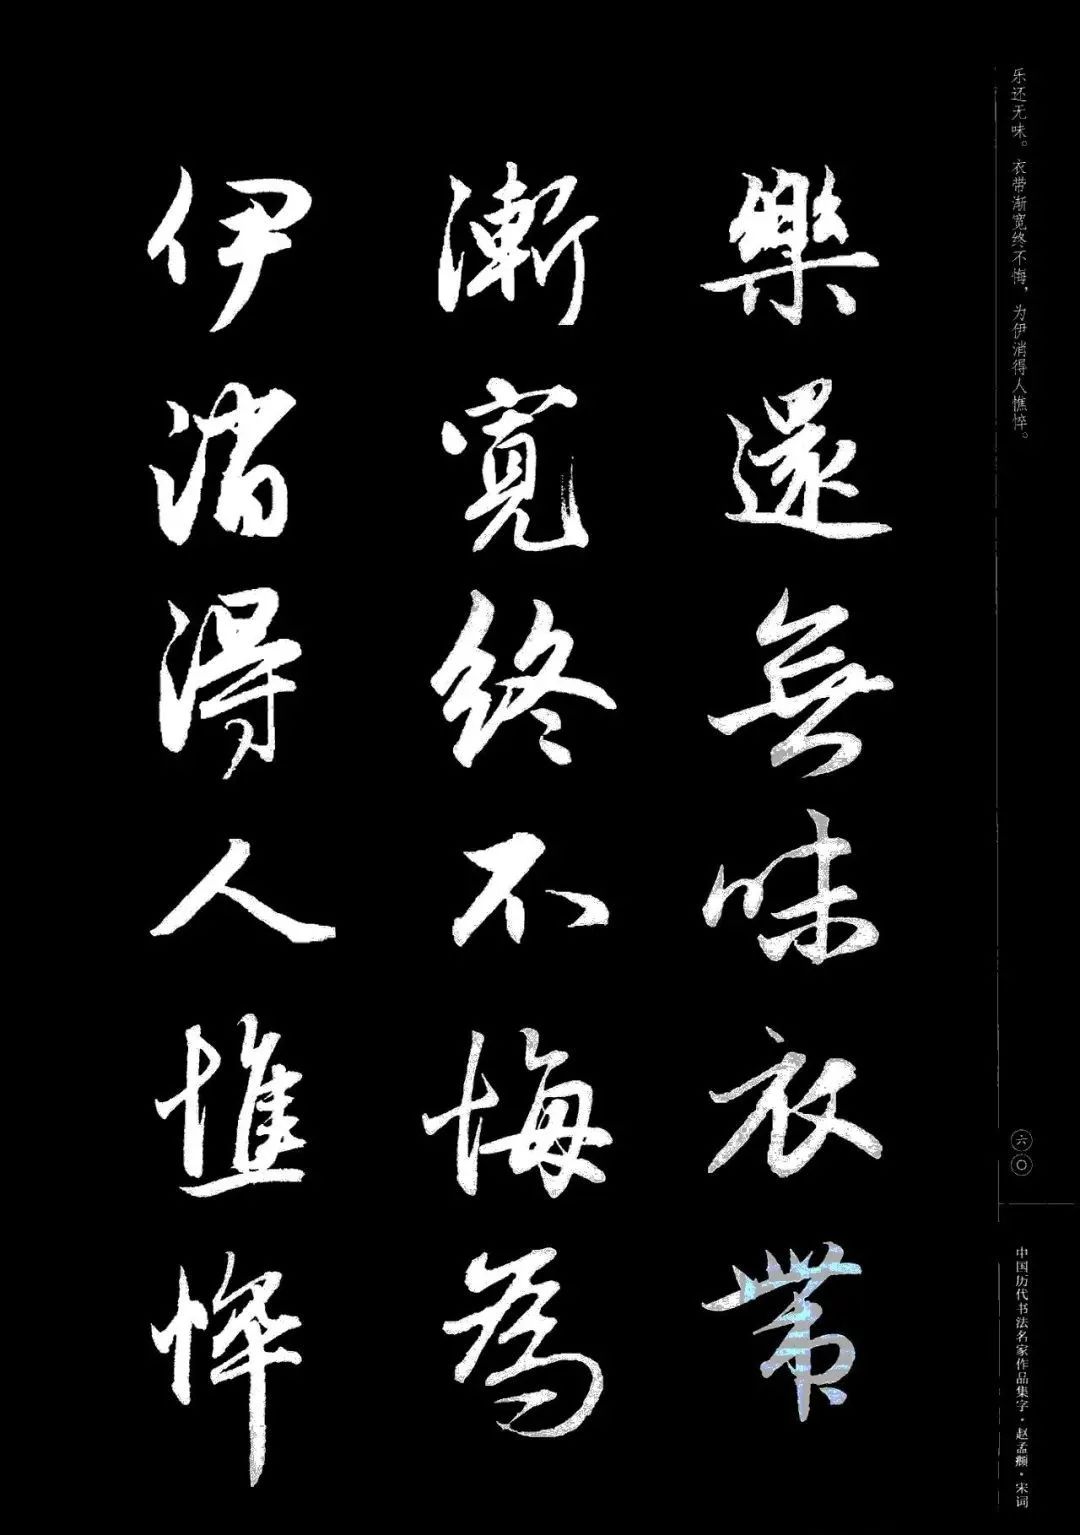 乐还无味。衣带渐宽终不悔，为伊消得人憔悴。
樂還無味衣帶
漸寬終不悔為
伊消得人憔悴
六〇
中国历代书法名家作品集字·赵孟頫·宋词